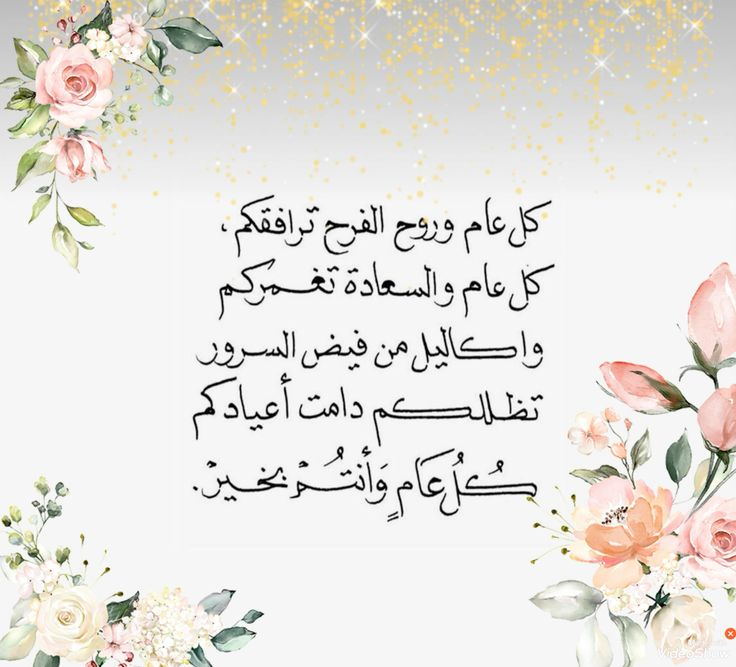 كل عام وروح الفرح ترافقكم،
كل عام والسعادة تغمركم
واكاليل من فيض السرور
تظللكم دامت أعيادكم
كُلُ عَامٍ وَأنتُمْ بخيرْ.
VideoShow